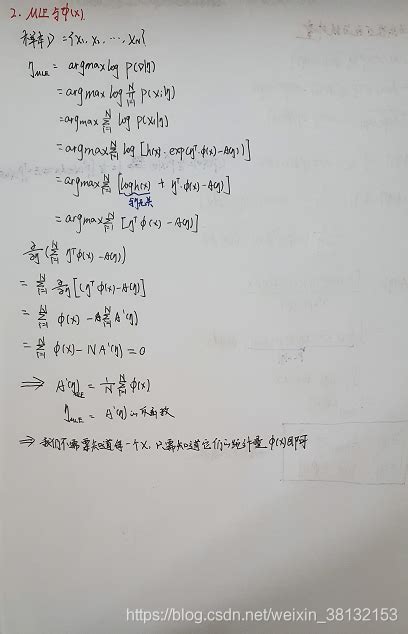 2. MLE与φ(x).
样本D = {x₁, x₂, ⋯, x_N}
η_MLE = argmax log P(D|η)
= argmax log ∏_{i=1}^N P(xᵢ|η)
= argmax ∑_{i=1}^N log P(xᵢ|η)
= argmax ∑_{i=1}^N log [h(x)·exp(ηᵀ·φ(x)-A(η))]
= argmax ∑_{i=1}^N [log h(x) + ηᵀ·φ(x)-A(η)]
与η无关
= argmax ∑_{i=1}^N [ηᵀφ(x)-A(η)]
∂/∂η (∑_{i=1}^N ηᵀφ(x)-A(η))
= ∑_{i=1}^N ∂/∂η [(ηᵀφ(x)-A(η)]
= ∑_{i=1}^N φ(x) - ∑_{i=1}^N A'(η)
= ∑_{i=1}^N φ(x) - NA'(η) = 0
⟹ A'(η)_MLE = 1/N ∑_{i=1}^N φ(x)
η_MLE = A'(η)的反函数
⇒ 我们不需要知道每一个x, 只需知道它们的统计量φ(x)即可
https://blog.csdn.net/weixin_38132153